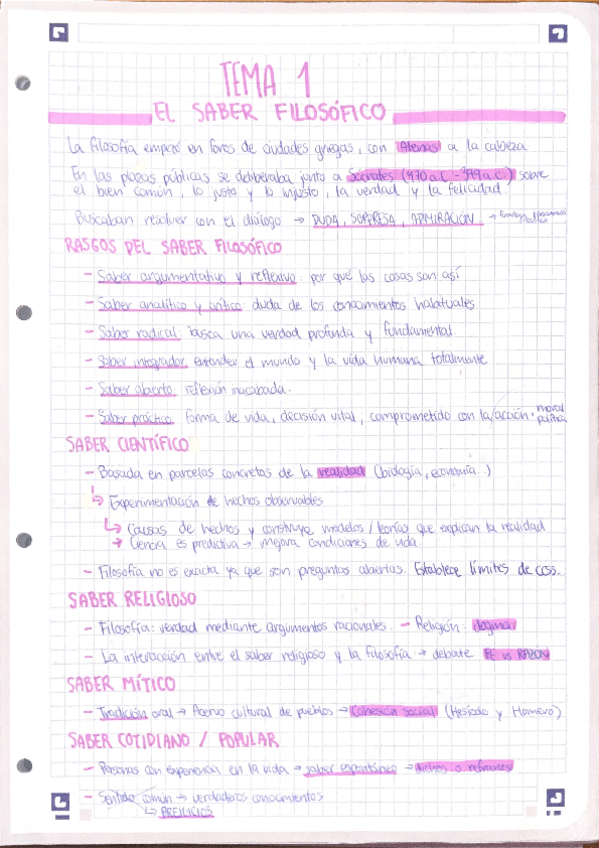 TEMA 1
EL SABER FILOSÓFICO
La filosofía empezó en foros de ciudades griegas, con Atenas a la cabeza
En las plazas públicas se deliberaba junto a Sócrates (470 a.C - 399 a.C) sobre
el bien común, lo justo y lo injusto, la verdad y la felicidad.
Buscaban resolver con el diálogo → DUDA, SORPRESA, ADMIRACIÓN →
RASGOS DEL SABER FILOSÓFICO
- Saber argumentativo y reflexivo: por qué las cosas son así
- Saber analítico y crítico: duda de los conocimientos habituales
- Saber radical: busca una verdad profunda y fundamental
- Saber integrador: entender el mundo y la vida humana totalmente
- Saber abierto: reflexión inacabada.
- Saber práctico: forma de vida, decisión vital, comprometido con la acción moral
política
SABER CIENTÍFICO
- Basada en parcelas concretas de la realidad (biología, economía..)
↳ Experimentación de hechos observables
↳ Causas de hechos y construye modelos / teorías que explican la realidad
→ Ciencia es predictiva → mejora condiciones de vida
- Filosofía no es exacta ya que son preguntas abiertas. Establece límites de ccss.
SABER RELIGIOSO
- Filosofía: verdad mediante argumentos racionales. - Religión: dogma
- La interacción entre el saber religioso y la filosofía → debate FE vs RAZÓN
SABER MÍTICO
- Tradición oral → Acervo cultural de pueblos → Cohesión social (Hesíodo y Homero)
SABER COTIDIANO / POPULAR
- Personas con experiencia en la vida → saber espontáneo → dichos o refranes
- Sentido común → verdaderos conocimientos
↳ PREJUICIOS